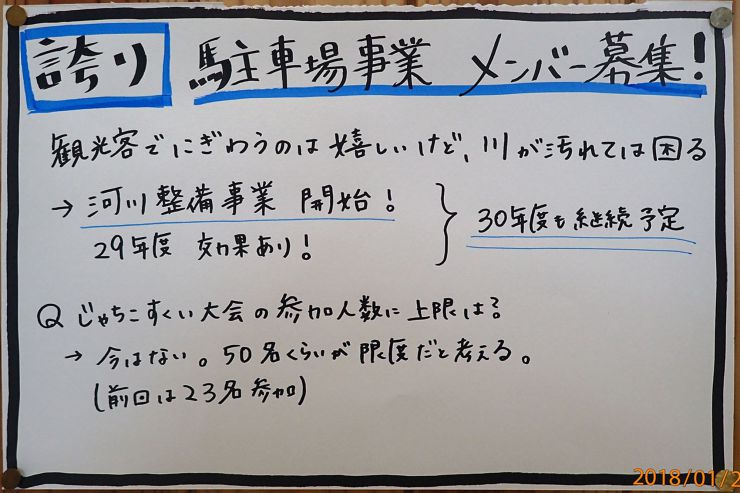 誇り 駐車場事業 メンバー募集!
観光客でにぎわうのは嬉しいけど、川が汚れては困る
→ 河川整備事業 開始!
29年度 効果あり!
30年度も継続予定
Q じゃちこすくい大会の参加人数に上限は?
→ 今はない。50名くらいが限度だと考える。
(前回は23名参加)
2018/01/2